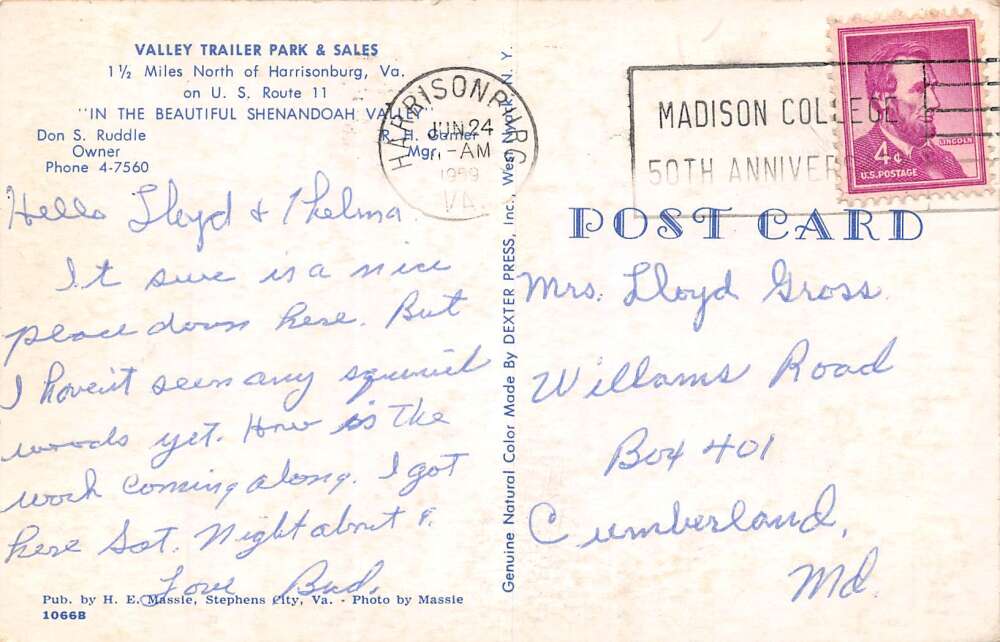 VALLEY TRAILER PARK & SALES
1½ Miles North of Harrisonburg, Va.
on U. S. Route 11
"IN THE BEAUTIFUL SHENANDOAH
Don S. Ruddle
Owner
Phone 4-7560
R. H.
Mgr.
Hello Lloyd & Thelma
It sure is a nice
place down here. But
I haven't seen any squirrel
woods yet. How is the
work coming along. I got
here Sat. Night about
Love Bud.
Pub. by H. E. Massie, Stephens City, Va. - Photo by Massie
1066B
Genuine Natural Color Made By DEXTER PRESS, Inc., West Nyack, N. Y.
HARRISONBURG
JUN 24
-AM
1959
VA.
MADISON COLLEGE
50TH ANNIVER
4¢
LINCOLN
U.S. POSTAGE
POST CARD
Mrs. Lloyd Gross
Willams Road
Box 401
Cumberland,
Md.